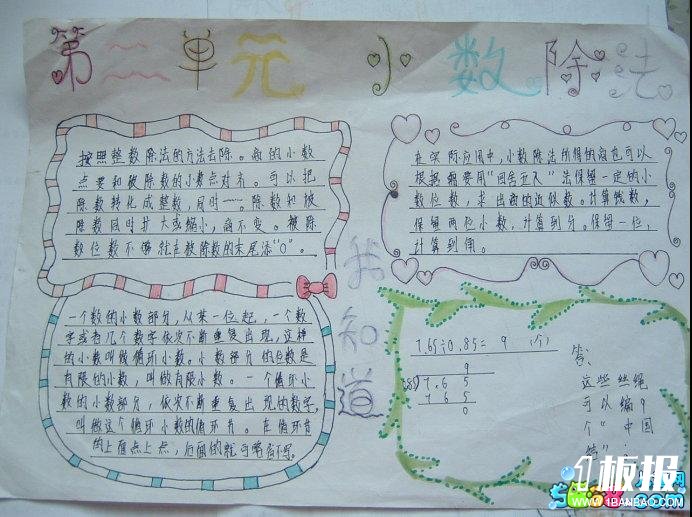 第二单元 小数除法
按照整数除法的方法去除。商的小数
点要和被除数的小数点对齐。可以把
除数转化成整数，同时……。除数和被
除数同时扩大或缩小，商不变。被除
数位数不够就在被除数的末尾添“0”。
在实际应用中，小数除法所得的商也可以
根据需要用“四舍五入”法保留一定的小
数位数，求出商的近似数。计算钱数，
保留两位小数，计算到分。保留一位，
计算到角。
我知道
一个数的小数部分，从某一位起，一个数
字或者几个数字依次不断重复出现，这样
的小数叫做循环小数。小数部分的位数是
有限的小数，叫做有限小数。一个循环小
数的小数部分，依次不断重复出现的数字，
叫做这个循环小数的循环节。在循环节
的上面点上点，后面的就可略省不写。
7.65÷0.85= 9 （个）
9
7.6 5
7 6 5
0
答：
这些丝绳
可以编9
个“中国
结”。
1板报
WWW.1BANBAO.COM